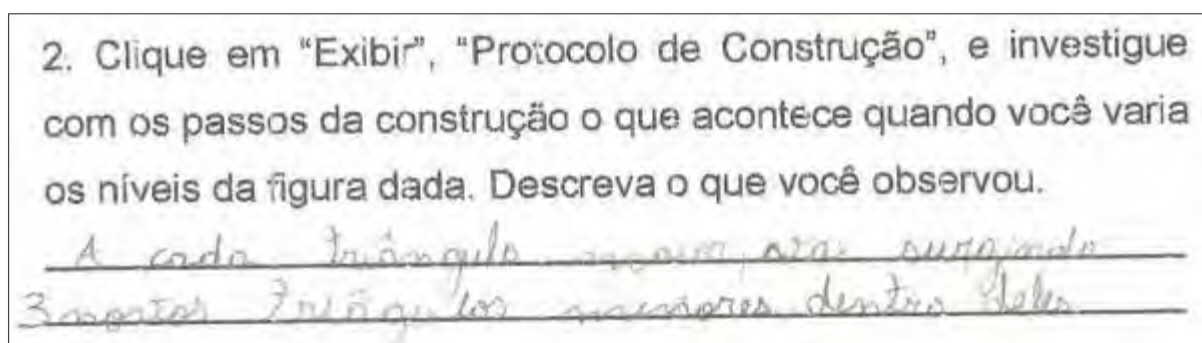 2. Clique em "Exibir", "Protocolo de Construção", e investigue
com os passos da construção o que acontece quando você varia
os níveis da figura dada. Descreva o que você observou.
A cada triângulo surgindo
3 triângulos menores dentro deles